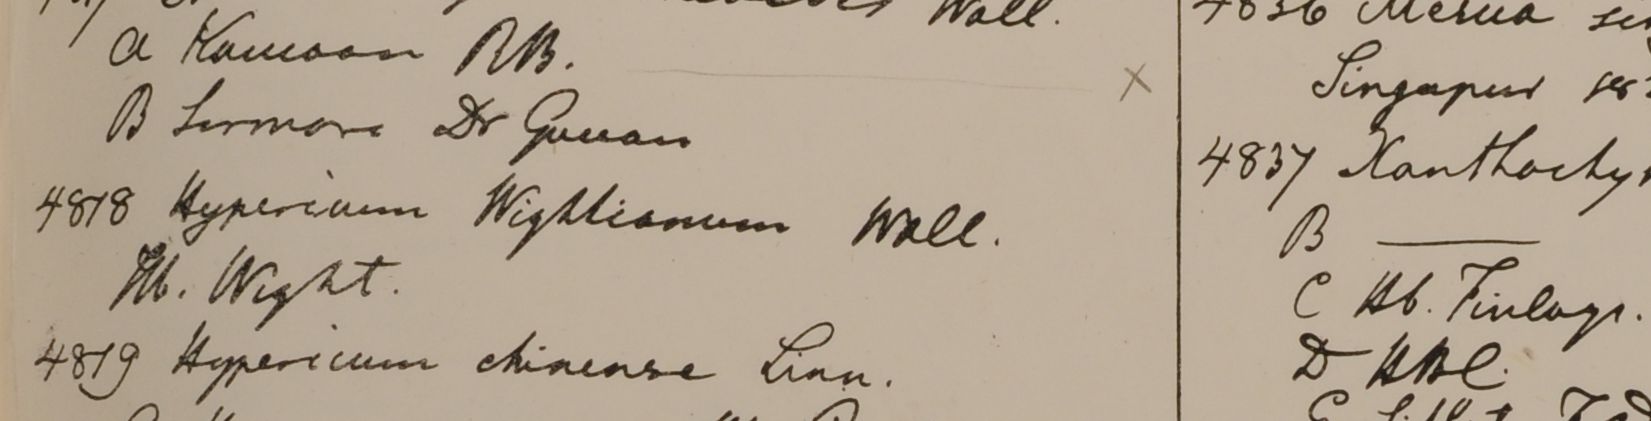 Wall.
a Kamaon RB.
B Sirmore Dr Govan
4818 Hypericum Wightianum Wall.
Hb. Wight.
4819 Hypericum chinense Linn.
4836 Mesua
Singapur
4837 Xanthochy
B —
C Hb. Finlays.
D HBC.